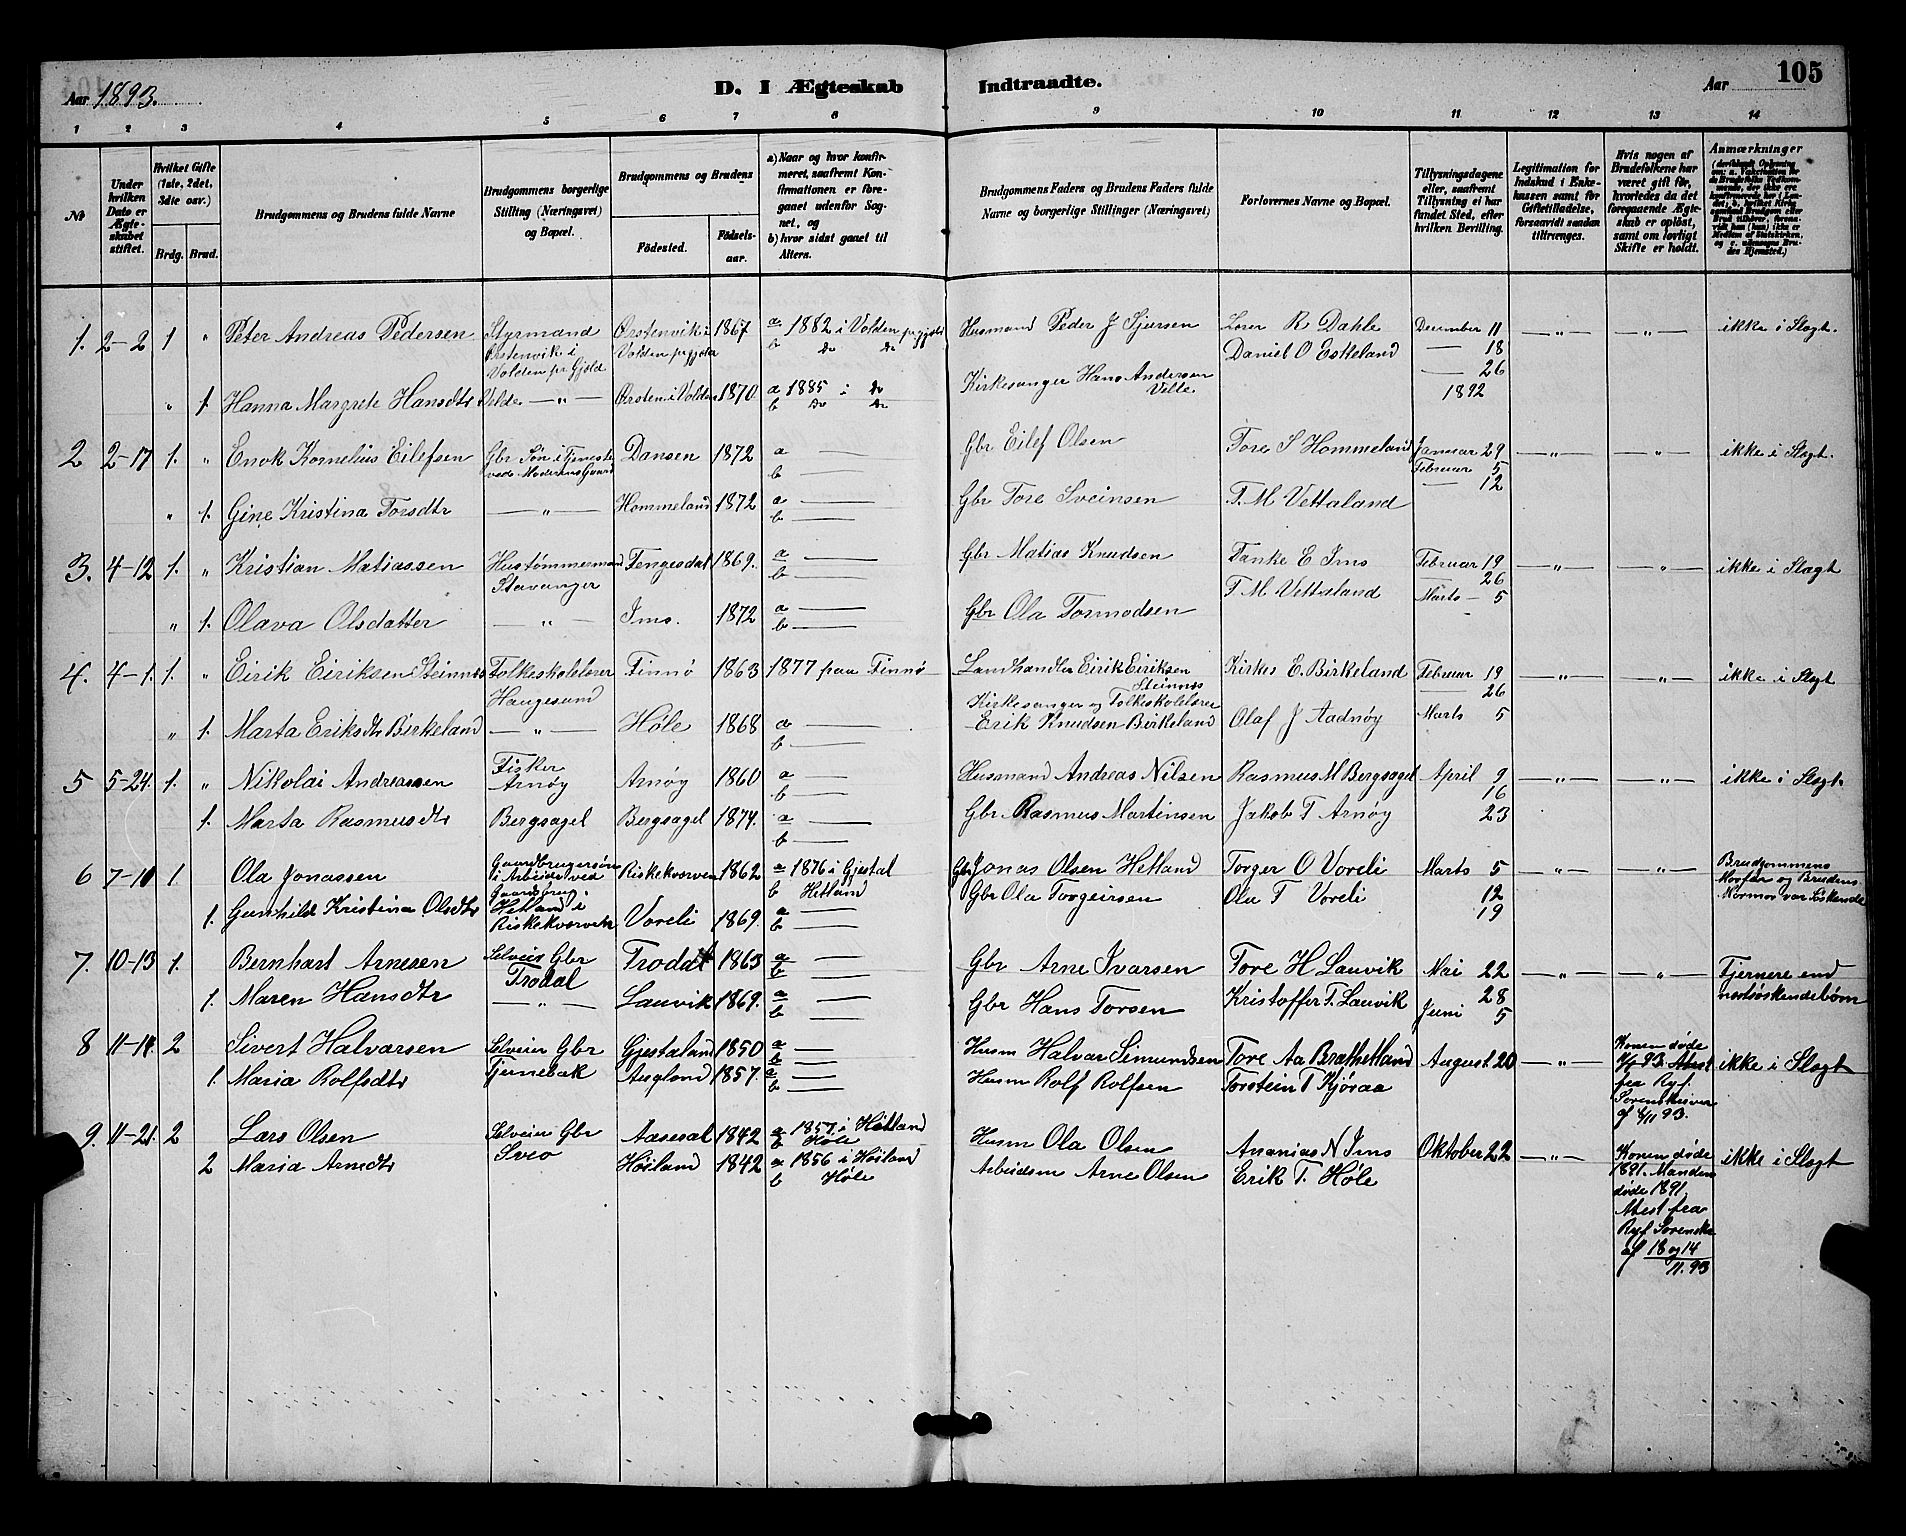 Aar 1893.
D. I Ægteskab Indtraadte.
Aar
105
1 2 3 4 5 6 7 8 9 10 11 12 13 14
No
Under hvilken Dato er Ægteskabet stiftet.
Hvilket Gifte (1ste, 2det, 3die osv.)
Brdg. Brud.
Brudgommens og Brudens fulde Navne
Brudgommens borgerlige Stilling (Næringsvei) og Bopæl.
Brudgommens og Brudens
Födested. Födselsaar.
a) Naar og hvor konfirmeret, saafremt Konfirmationen er foregaaet udenfor Sognet, og
b) hvor sidst gaaet til Alters.
Brudgommens Faders og Brudens Faders fulde Navne og borgerlige Stillinger (Næringsvei)
Forlovernes Navne og Bopæl.
Tillysningsdagene eller, saafremt Tillysning ei har fundet Sted, efter hvilken Bevilling.
Legitimation for Indskud i Enkekassen samt for Giftetilladelse, forsaavidt saadan tiltrænges.
Hvis nogen af Brudefolkene har været gift før, hvorledes da det foregaaende Ægteskab er oplöst, samt om lovligt Skifte er holdt.
Anmærkninger
1. 2-2 1 " Peter Andreas Pedersen Styrmand Ørstenvik i Volden prgjeld Ørstenvik i Volden prgjeld 1867 a 1882 i Volden prgjeld b Do Do Husmand Peder J Sjursen Lærer R Dahle December 11 —"— —"— ikke i Slægt.
Daniel O Eskeland — 18
— 26
" 1. Hanna Margrete Hansdtr Velde —"— Ørsten i Volden 1870. a 1885 i Do b Do Do Kirkesanger Hans Andersen Velle 1892
2 2-17 1. " Enok Kornelius Eilefsen Gbr Søn i Tjeneste ved Moderens Gaard Dansen 1872 a — b Gbr Eilef Olsen Tore S Hommeland Januar 29 —"— —"— ikke i Slægt.
Februar 5
— 12
" 1. Gine Kristina Torsdtr —"— Hommeland 1872 a — b — Gbr Tore Sveinsen T. M Vettaland
3. 4-12 1. " Kristian Matiassen Hustømmermand Stavanger Tengesdal 1869. a — b — Gbr Matias Knudsen Tanke E Ims Februar 19 —"— —"— ikke i Slægt
— 26
" 1. Olava Olsdatter —"— Ims. 1872 a — b — Gbr Ola Tormodsen T M Vettaland Marts 5
4. 4-1. 1. " Eirik Eiriksen Steinnes Folkeskolelærer Haugesund Finnø 1863 1877 paa Finnø Landhandler Eirik Eiriksen Steinnes Kirkes E. Birkeland Februar 19 —"— —"— ikke i Slægt
— 26
" 1. Marta Eriksdtr Birkeland —"— Høle 1868 a — b — Kirkesanger og Folkeskolelærer Erik Knudsen Birkeland Olaf J Aadnøy Marts 5
5 5-24. 1. " Nikolai Andreassen Fisker Arnøy Arnøy 1860 a — b — Husmand Andreas Nilsen Rasmus M Bergsagel April 9 —"— —"— ikke i Slægt.
16
1. Marta Rasmusdtr Bergsagel Bergsagel 1874. a — b — Gbr Rasmus Martinsen Jakob T Arnøy 23
6 7-10 1. Ola Jonassen Gaardbrugersøn i Arbeide ved Gaardsbrug. Riskekværven 1862 a 1876 i Gjestal b Hetland Gbr Jonas Olsen Hetland Torger O Voreli Marts 5 —"— —"— Brudgommens Morfar og Brudens Mormor var Søskende
1. Gunhild Kristina Olsdtr Hetland i Riskekværven Voreli 1869. a — b — Gbr Ola Torgeirsen Ola T Voreli 12
19
7. 10-13 1. Bernhart Arnesen Selveier Gbr Trodal Trodal 1863 a — b — Gbr Arne Ivarsen Tore H Lauvik Mai 22 —"— —"— Fjernere end næstsøskendebørn
1. Maren Hansdtr —"— Lauvik 1869. a — b — Gbr Hans Torsen Kristoffer T. Lauvik 28
Juni 5
8 11-14. 2 Sivert Halvarsen Selveier Gbr Tjunebak Gjestaland 1850 a — b — Husm Halvar Simundsen Tore Aa Bråthetland August 20 —"— Konen døde 83. Attest fra Ryf. Sorenskriver af 8/11 93. ikke i Slægt
1. Maria Rolfsdtr Ausglend 1857. a — b — Husm Rolf Rolfsen Torstein T Kjøraa
9. 11-21. 2 Lars Olsen Selveier Gbr Sveo Aaseral 1842 a 1857 i Hetland b Høle Husm Ola Olsen Ananias N Ims Oktober 22 —"— Konen døde 1891. Manden døde 1891, Attest fra Ryf Sorenskr af 18 og 14 11. 93 ikke i Slægt
2 Maria Arnedtr Høiland 1842 a 1856 i Høiland b Høle Arbeidsm Arne Olsen Erik T. Høle